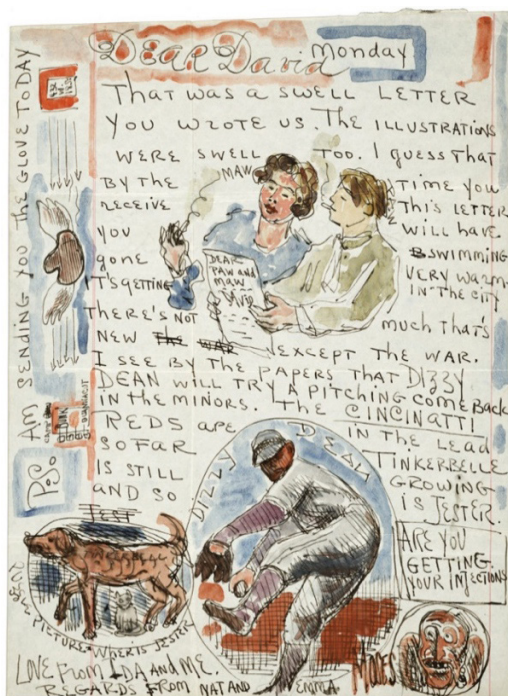 DEAR David
Monday
THAT WAS A SWELL LETTER
YOU WROTE US. THE ILLUSTRATIONS
WERE SWELL TOO. I GUESS THAT
BY THE TIME YOU
RECEIVE THIS LETTER
YOU WILL HAVE
gone SWIMMING
IT'S GETTING VERY WARM
IN THE CITY
THERE'S NOT much THAT'S
NEW THE WAR EXCEPT THE WAR.
I SEE BY THE PAPERS THAT DIZZY
DEAN WILL TRY A PITCHING COME BACK
IN THE MINORS. THE CINCINATTI
REDS ARE IN THE LEAD
SO FAR TINKERBELLE
IS STILL GROWING
AND SO IS JESTER.
MAW
DEAR
PAW and
MAW
DIZZY DEAN
ARE YOU
GETTING
YOUR INJECTIONS
PICTURE WHERE IS JESTER
LOVE FROM IDA AND ME.
REGARDS FROM NAT AND EMMA
MOSES
P.S. AM SENDING YOU THE GLOVE TODAY